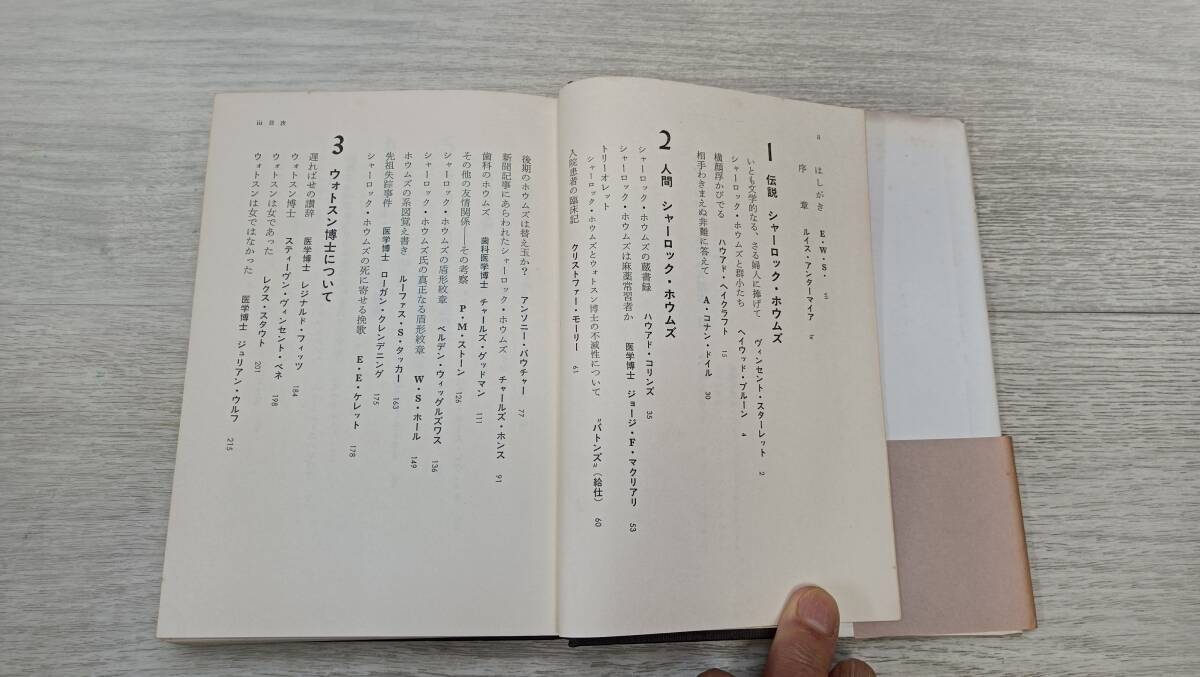 ii
はしがき E・W・S・ vii
序章 ルイス・アンターマイア ix
1 伝説 シャーロック・ホウムズ
いとも文学的なる、さる婦人に捧げて ヴィンセント・スターレット 2
シャーロック・ホウムズと群小たち ヘイウッド・ブルーン 4
横顔浮かびでる ハウアド・ヘイクラフト 15
相手わきまえぬ非難に答えて A・コナン・ドイル 30
2 人間 シャーロック・ホウムズ
シャーロック・ホウムズの蔵書録 ハウアド・コリンズ 35
シャーロック・ホウムズは麻薬常習者か 医学博士 ジョージ・F・マクリアリ 53
トリーオレット
シャーロック・ホウムズとウォトスン博士の不滅性について 〝バトンズ〟(給仕) 60
入院患者の臨床記 クリストファー・モーリー 61
iii 目次
後期のホウムズは替え玉か? アンソニー・バウチャー 77
新聞記事にあらわれたシャーロック・ホウムズ チャールズ・ホンス 91
歯科のホウムズ 歯科医学博士 チャールズ・グッドマン 111
その他の友情関係——その考察 P・M・ストーン 126
シャーロック・ホウムズの盾形紋章 ベルデン・ウィッグルズワス 136
シャーロック・ホウムズ氏の真正なる盾形紋章 W・S・ホール 149
ホウムズの系図覚え書き ルーファス・S・タッカー 163
先祖失踪事件 医学博士 ローガン・クレンデニング 175
シャーロック・ホウムズの死に寄せる挽歌 E・E・ケレット 178
3 ウォトスン博士について
遅ればせの讃辞 医学博士 レジナルド・フィッツ 184
ウォトスン博士 スティーヴン・ヴィンセント・ベネ 198
ウォトスンは女であった レクス・スタウト 201
ウォトスンは女ではなかった 医学博士 ジュリアン・ウルフ 215